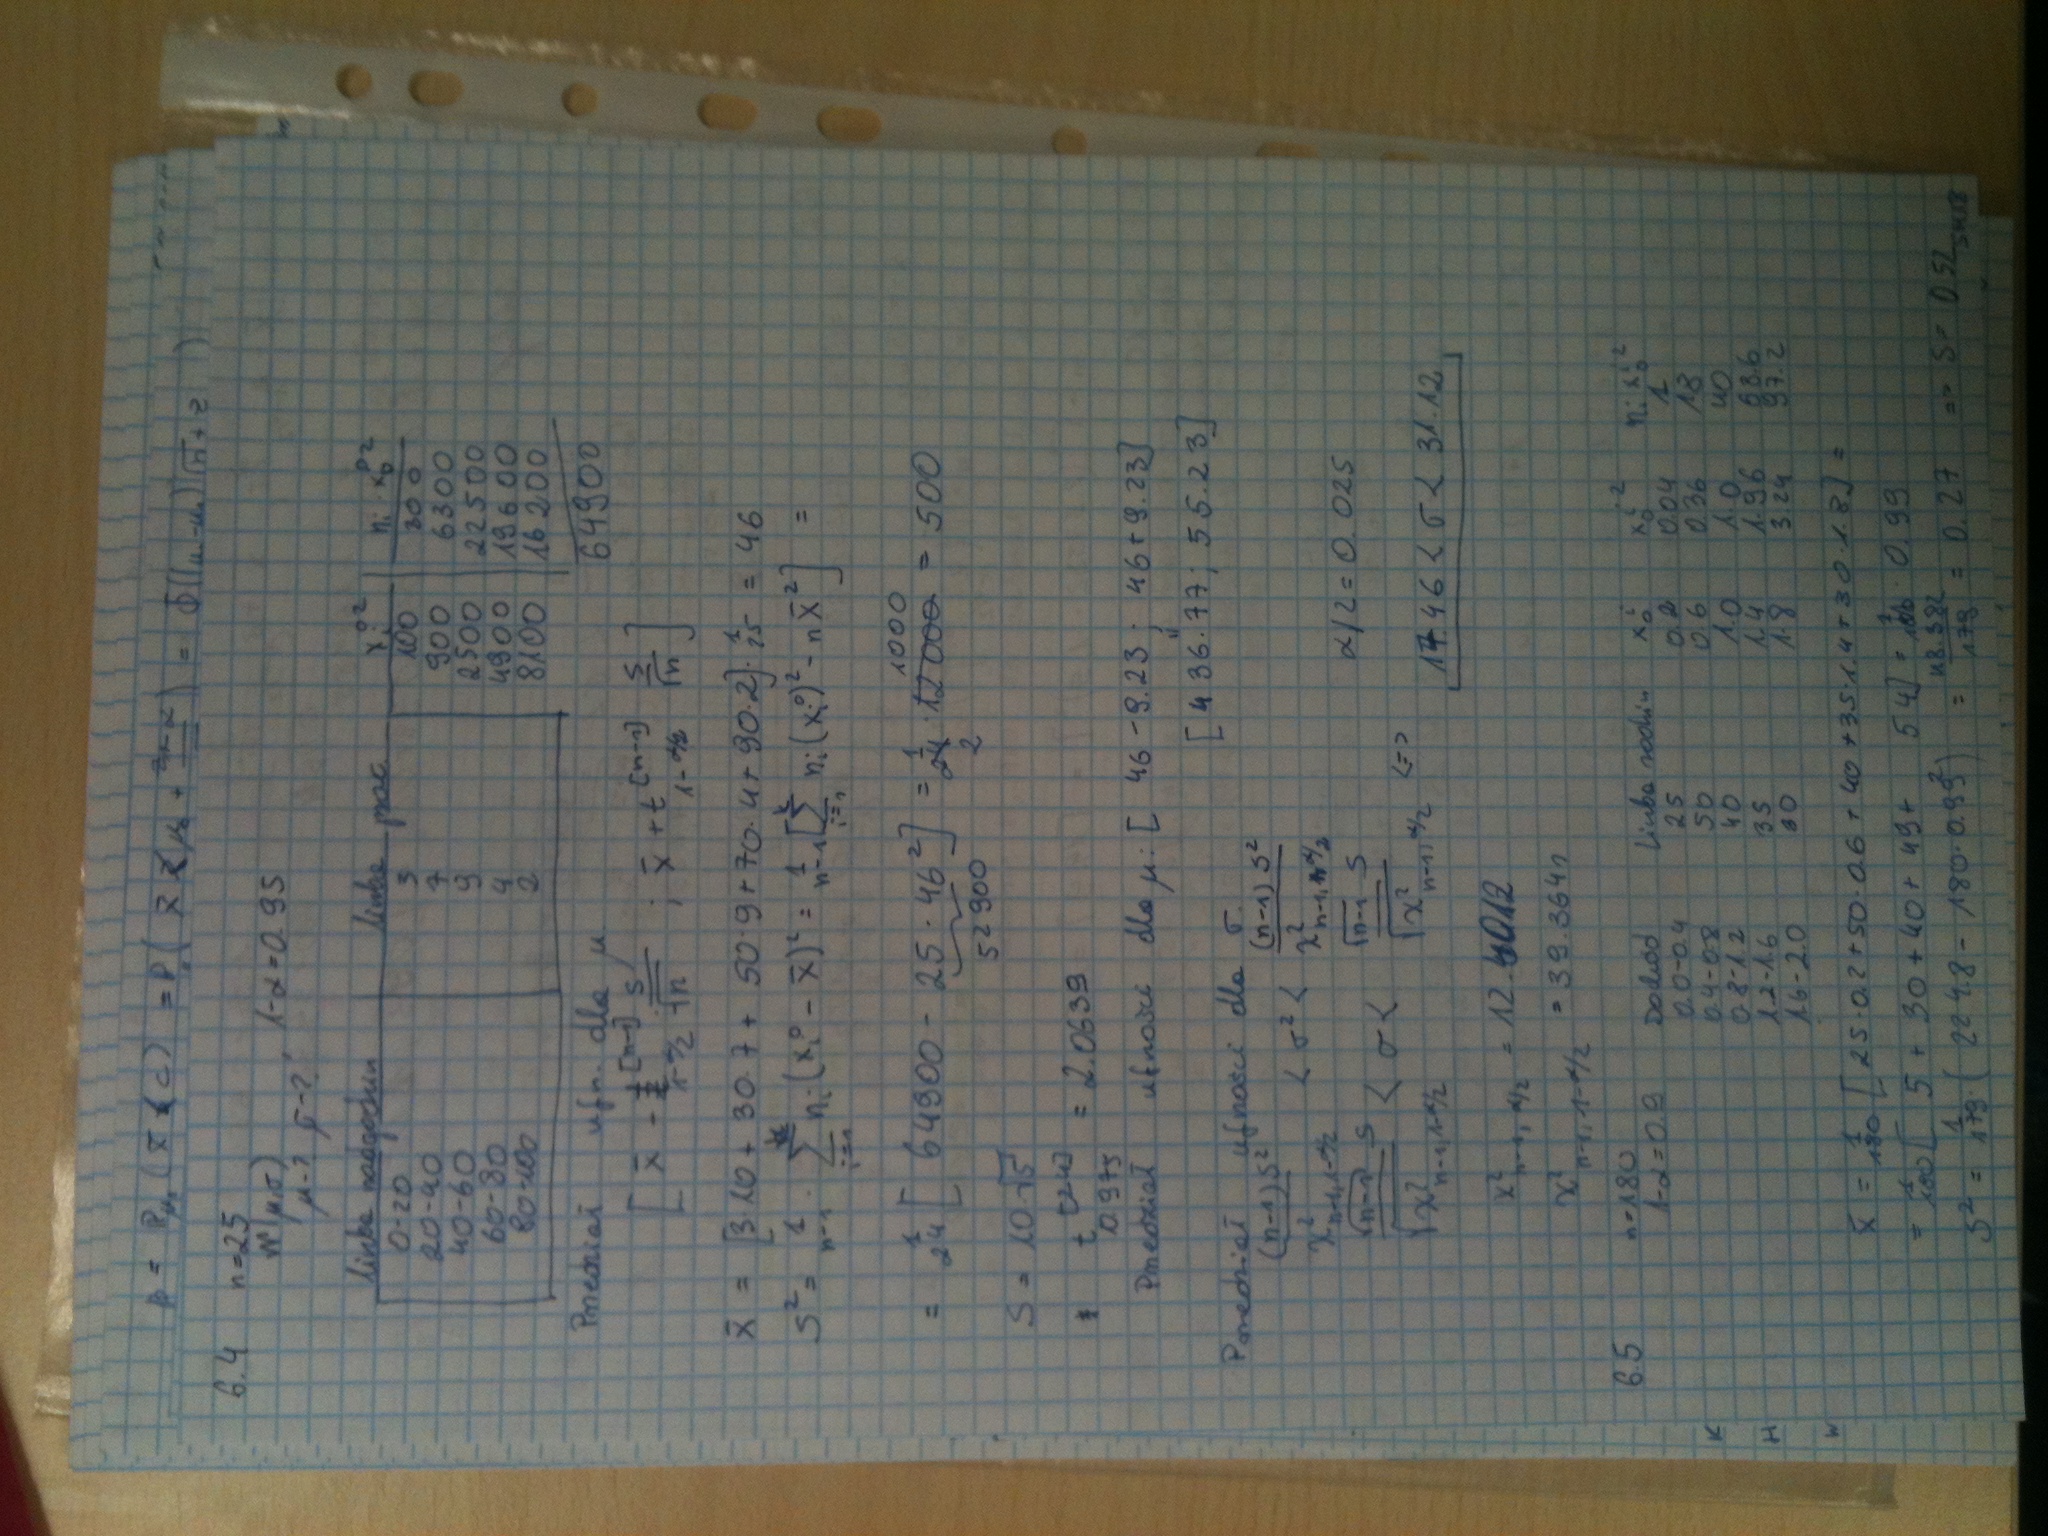 p = P_μ₁ ( x̄ < c ) = P ( x̄ < μ₀ + ) = Φ((μ₀-μ₁)√n + z )
6.4 n=25
N(μ,σ) , 1-α=0.95
μ-? σ-?
liczba nadgodzin liczba prac. xᵢ⁰² nᵢ·x₀ᵒ²
0-20 3 100 300
20-40 7 900 6300
40-60 9 2500 22500
60-80 4 4900 19600
80-100 2 8100 16200
64900
Przedział ufn. dla μ
[ x̄ - t^[n-1]_1-α/2 · S/√n ; x̄ + t^[n-1]_1-α/2 S/√n ]
x̄ = [3·10 + 30·7 + 50·9 + 70·4 + 90·2]·1/25 = 46
S² = 1/n-1 · Σ_i=1^k nᵢ(xᵢ⁰ - x̄)² = 1/n-1 [Σ_i=1^k nᵢ(xᵢ⁰)² - n x̄²] =
= 1/24 [ 64900 - 25·46² ] = 1/24 · 12000 = 500
52900 2 1000
S = 10·√5
t^[24]_0.975 = 2.0639
Przedział ufności dla μ: [ 46-9.23; 46+9.23]
[ 36.77; 55.23]
Przedział ufności dla σ.
(n-1)S²/χ²_n-1,1-α/2 < σ² < (n-1)S²/χ²_n-1,α/2
α/2 = 0.025
√n-1 S/√χ²_n-1,1-α/2 < σ < √n-1 S/√χ²_n-1,α/2 <=>
17.46 < σ < 31.12
χ²_n-1,α/2 = 12.4012
χ²_n-1,1-α/2 = 39.3641
6.5 n=180
1-α=0.9
Dochód Liczba rodzin x₀ⁱ x₀ⁱ² nᵢ x₀ⁱ²
0.0-0.4 25 0.2 0.04 1
0.4-0.8 50 0.6 0.36 18
0.8-1.2 40 1.0 1.0 40
1.2-1.6 35 1.4 1.96 68.6
1.6-2.0 30 1.8 3.24 97.2
K
H
W
x̄ = 1/180 [ 25·0.2+50·0.6+40+35·1.4+30·1.8] =
= 1/180 [ 5 + 30 + 40 + 49 + 54] = 0.99
S² = 1/179 · ( 224.8 - 180·0.99² ) = 48.382/179 = 0.27 => S = 0.52